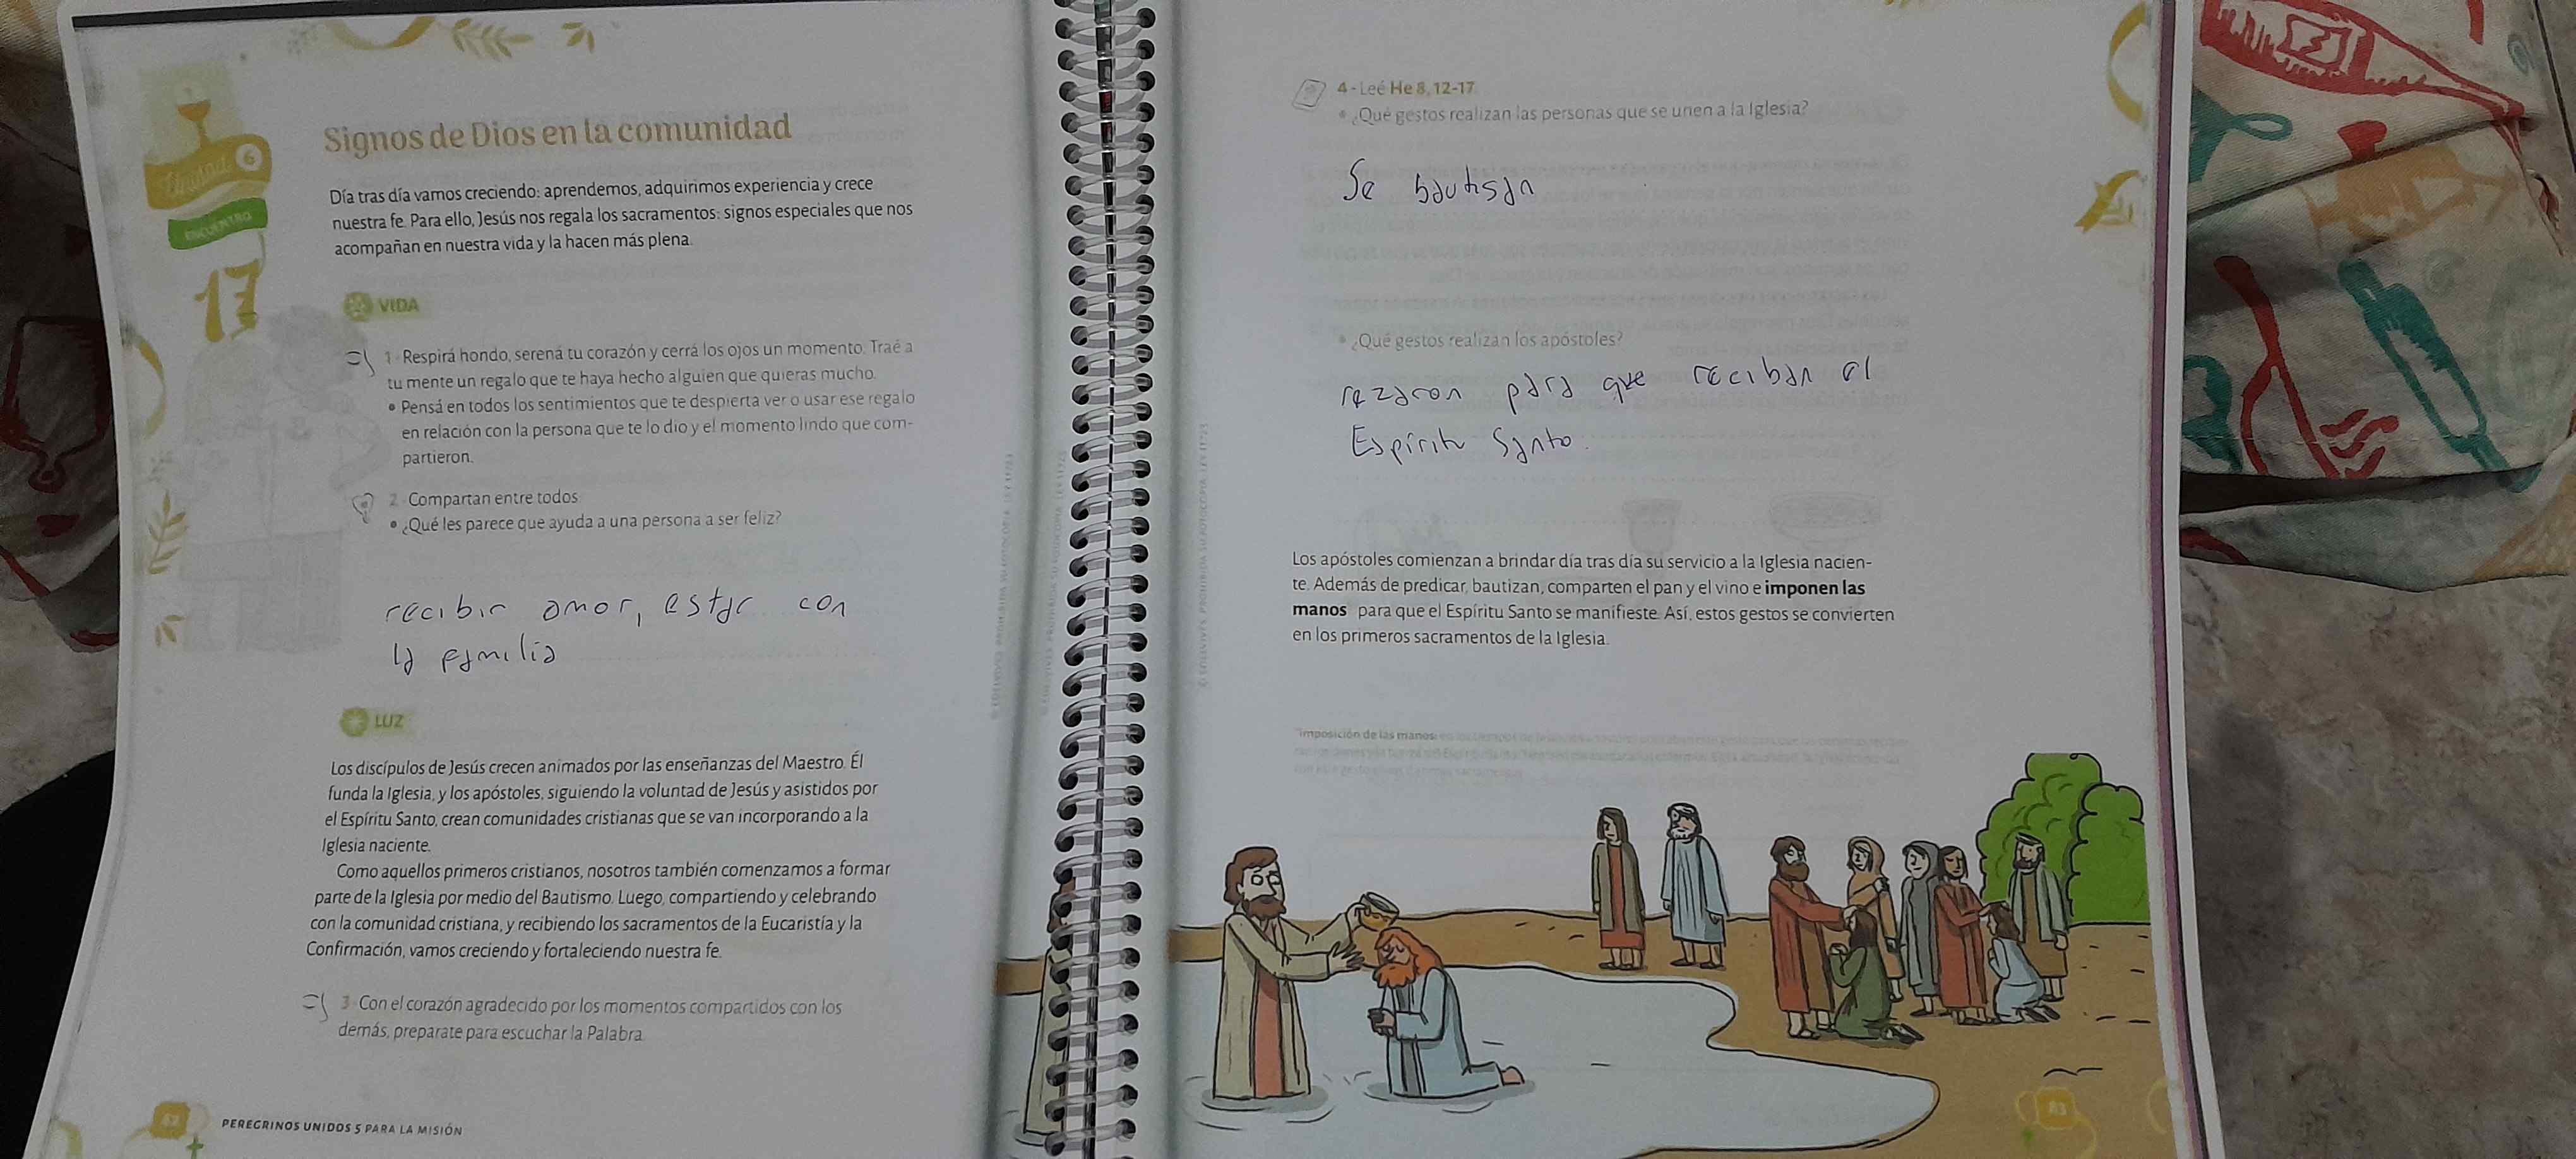 Unidad 6
ENCUENTRO
17
Signos de Dios en la comunidad
Día tras día vamos creciendo: aprendemos, adquirimos experiencia y crece
nuestra fe. Para ello, Jesús nos regala los sacramentos: signos especiales que nos
acompañan en nuestra vida y la hacen más plena.
VIDA
1 - Respirá hondo, serená tu corazón y cerrá los ojos un momento. Traé a
tu mente un regalo que te haya hecho alguien que quieras mucho.
• Pensá en todos los sentimientos que te despierta ver o usar ese regalo
en relación con la persona que te lo dio y el momento lindo que com-
partieron.
2 - Compartan entre todos
• ¿Qué les parece que ayuda a una persona a ser feliz?
recibir amor, estar con
la familia
LUZ
Los discípulos de Jesús crecen animados por las enseñanzas del Maestro. Él
funda la Iglesia, y los apóstoles, siguiendo la voluntad de Jesús y asistidos por
el Espíritu Santo, crean comunidades cristianas que se van incorporando a la
Iglesia naciente.
Como aquellos primeros cristianos, nosotros también comenzamos a formar
parte de la Iglesia por medio del Bautismo. Luego, compartiendo y celebrando
con la comunidad cristiana, y recibiendo los sacramentos de la Eucaristía y la
Confirmación, vamos creciendo y fortaleciendo nuestra fe.
3 - Con el corazón agradecido por los momentos compartidos con los
demás, preparate para escuchar la Palabra.
PEREGRINOS UNIDOS 5 PARA LA MISIÓN
4 - Leé He 8, 12-17.
• ¿Qué gestos realizan las personas que se unen a la Iglesia?
Se bautisan
• ¿Qué gestos realizan los apóstoles?
rezaron para que reciban el
Espíritu Santo.
Los apóstoles comienzan a brindar día tras día su servicio a la Iglesia nacien-
te. Además de predicar, bautizan, comparten el pan y el vino e imponen las
manos para que el Espíritu Santo se manifieste. Así, estos gestos se convierten
en los primeros sacramentos de la Iglesia.
Imposición de las manos:
83